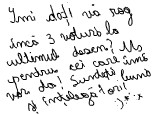 Îmi dați vă rog
încă 3 voturi la
ultimul desen? Ms
pentru cei care îmi
vor da! Sunteți buni
și înțelegători!
:,* :x